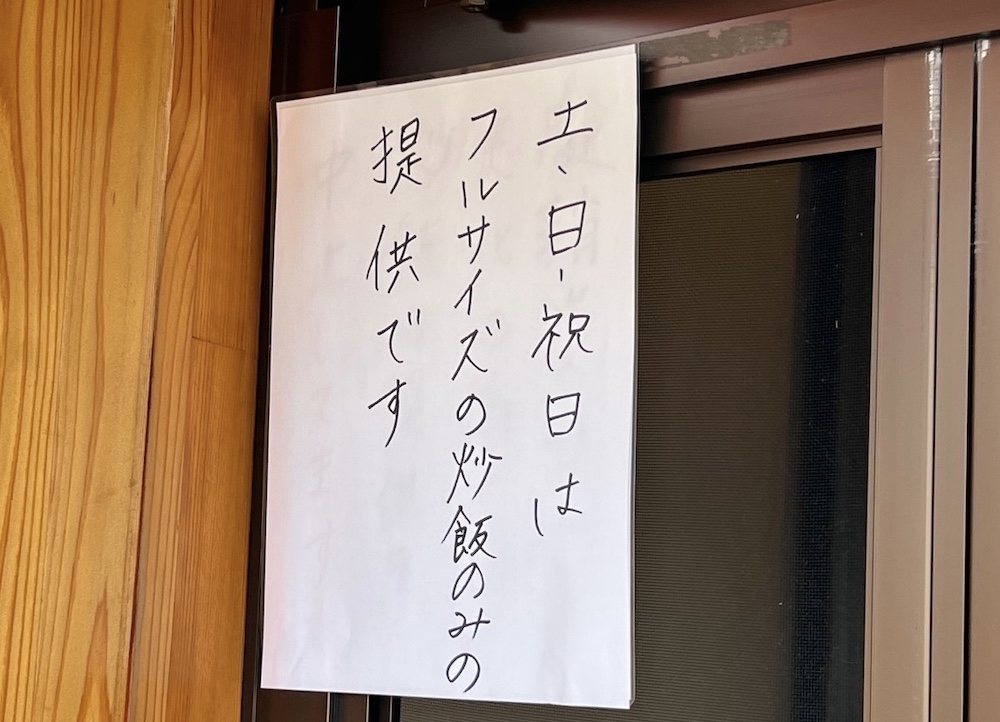 土、日、祝日は
フルサイズの炒飯のみの
提供です